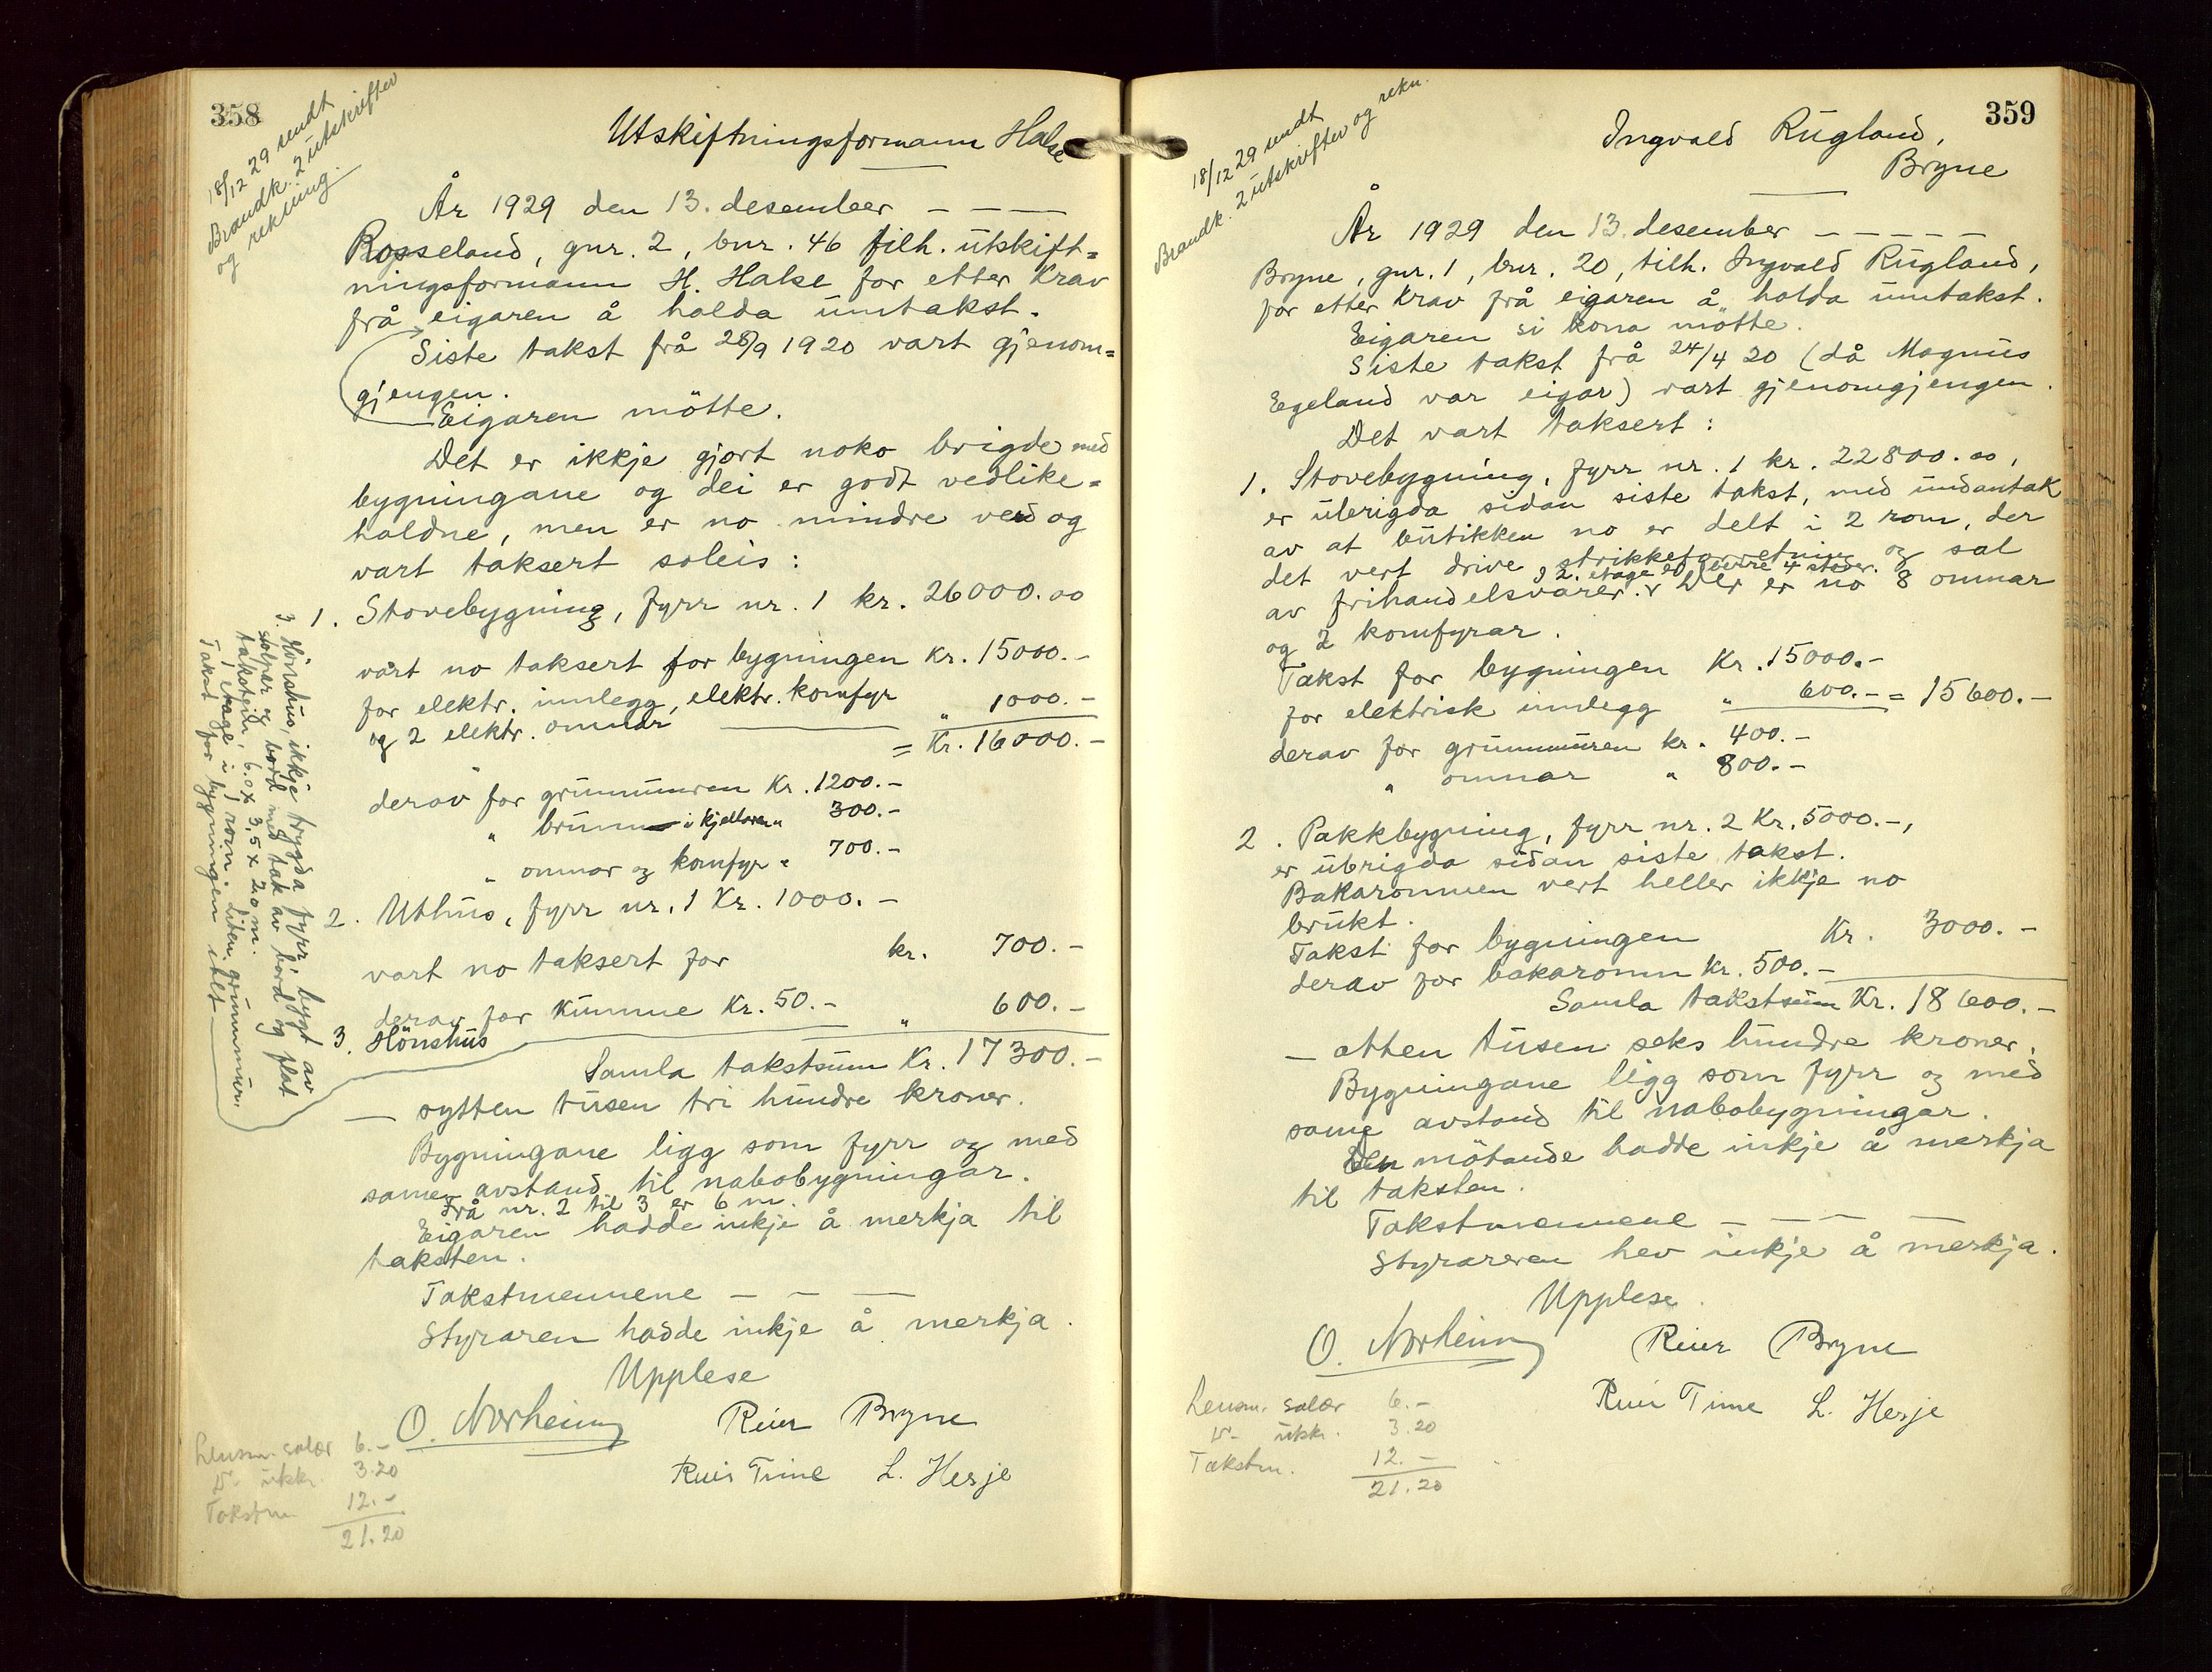 358
18/12 29 sendt
Brandk. 2 utskrifter
og rekning.
Utskiftningsformann Halse
År 1929 den 13. desember – – –
Rosseland, gnr. 2, bnr. 46 tilh. utskift=
ningsformann H. Halse for etter krav
frå eigaren å halda umtakst.
Siste takst frå 28/9 1920 vart gjenom=
gjengen.
Eigaren møtte.
Det er ikkje gjort noko brigde med
bygningane og dei er godt vedlike=
haldne, men er no mindre verd og
vart taksert soleis:
1. Stovebygning, fyrr nr. 1 kr. 26000.00
vart no taksert for bygningen Kr. 15000.-
for elektr. innlegg, elektr. komfyr
og 2 elektr. omnar " 1000.-
= Kr. 16000.-
derav for grunnmuren Kr. 1200.-
" brunn i kjellaren " 300.-
" omnar og komfyr " 700.-
2. Uthus, fyrr nr. 1 Kr. 1000.-
vart no taksert for kr. 700.-
derav for kumme Kr. 50.-
3. Hönshus " 600.-
3. Hönshus, ikkje trygda fyrr, bygt av
stolpar og bord med tak av bord og flat
takstein, 6.0 x 3,5 x 2.0 m.
1 etage, i 1 rom. Liten grunnmur.
Takst for bygningen ialt
Samla takstsum Kr. 17300.-
– sytten tusen tri hundre kroner.
Bygningane ligg som fyrr og med
same avstand til nabobygningar.
Frå nr. 2 til 3 er 6 m.
Eigaren hadde inkje å merkja til
taksten.
Takstmennene – – –
Styraren hadde inkje å merkja.
Upplese
O. Norheim Reier Bryne
Reier Time L. Herje
Lensm. salær 6.-
D- ukk. 3.20
Takstm. 12.-
21.20
359
18/12 29 sendt
Brandk. 2 utskrifter og rekn.
Ingvald Rugland,
Bryne
År 1929 den 13. desember – – – – –
Bryne, gnr. 1, bnr. 20, tilh. Ingvald Rugland,
for etter krav frå eigaren å halda umtakst.
Eigaren si kona møtte.
Siste takst frå 24/4 20 (då Magnus
Egeland var eigar) vart gjenomgjengen.
Det vart taksert:
1. Stovebygning, fyrr nr. 1 kr. 22800.00,
er ubrigda sidan siste takst, med undantak
av at butikken no er delt i 2 rom, der
det vert drive strikkeforretning og sal
av frihandelsvarer. I 2. etage er fleire 4 stover. Der er no 8 omnar
og 2 komfyrar.
Takst for bygningen Kr. 15000.-
for elektrisk innlegg " 600.- = 15600.-
derav for grunnmuren kr. 400.-
" omnar " 800.-
2. Pakkbygning, fyrr nr. 2 Kr. 5000.-,
er ubrigda sidan siste takst.
Bakaromnen vert heller ikkje no
brukt.
Takst for bygningen Kr. 3000.-
derav for bakaromn Kr. 500.-
Samla takstsum Kr. 18600.-
– atten tusen seks hundre kroner.
Bygningane ligg som fyrr og med
same avstand til nabobygningar.
Den møtande hadde inkje å merkja
til taksten.
Takstmennene – – – –
Styraren hev inkje å merkja.
Upplese.
O. Norheim Reier Bryne
Reier Time L. Herje
Lensm. salær 6.-
D- ukk. 3.20
Takstm. 12.-
21.20